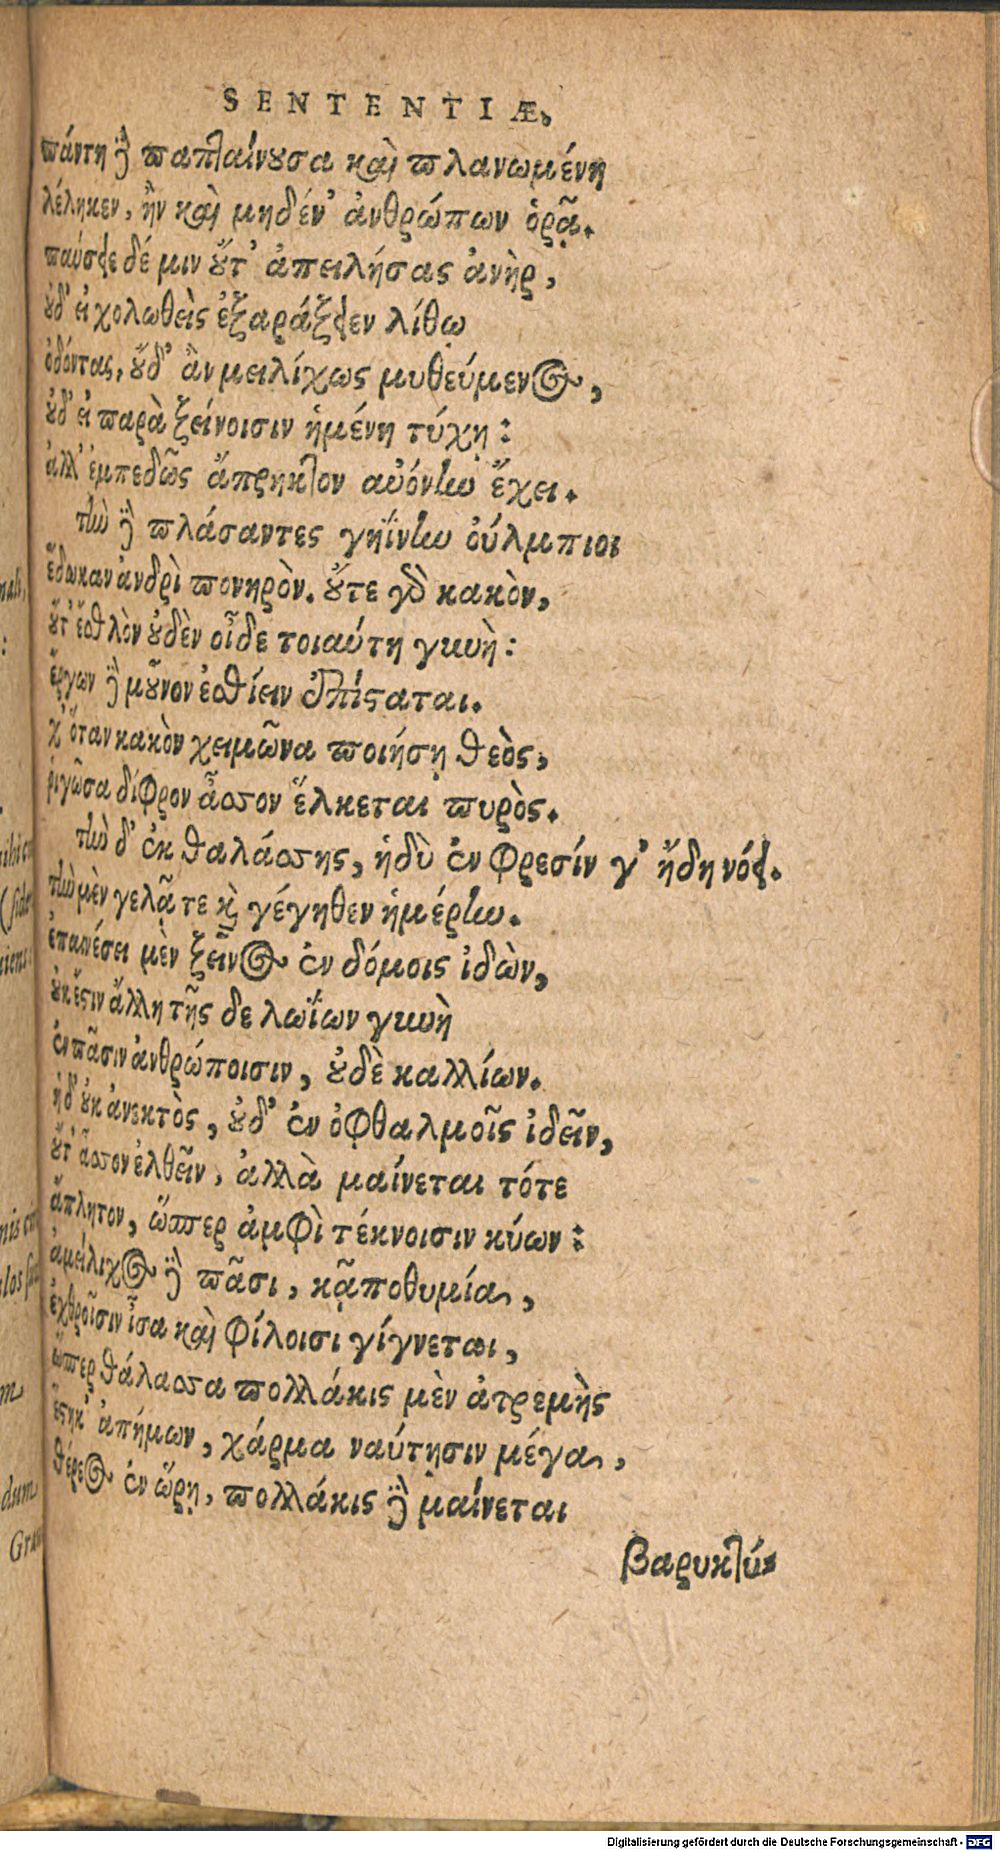 SENTENTIÆ,
πάντη δὲ παπταίνουσα καὶ πλανωμένη
λέληκεν, ἢν καὶ μηδέν' ἀνθρώπων ὁρᾷ.
παύσειε δέ μιν οὔτ' ἀπειλήσας ἀνὴρ,
οὐδ' εἰ χολωθεὶς ἐξαράξειεν λίθῳ
ὀδόντας, οὔδ' ἂν μειλίχως μυθεύμενος,
οὐδ' εἰ παρὰ ξείνοισιν ἡμένη τύχῃ:
ἀλλ' ἐμπεδῶς ἄπρηκτον αὐόνὴν ἔχει.
τὴν δὲ πλάσαντες γηΐνην ὀύλμπιοι
ἔδωκαν ἀνδρὶ πονηρὸν. οὔτε γὰρ κακὸν,
οὔτ' ἐσθλὸν οὐδὲν οἶδε τοιαύτη γυνὴ:
ἔργων δὲ μοῦνον ἐσθίειν ἐπίσταται.
χ' ὅταν κακὸν χειμῶνα ποιήσῃ θεὸς,
ῥιγῶσα δίφρον ἆσσον ἕλκεται πυρὸς.
τὴν δ' ἐκ θαλάσσης, ἡδὺ ἐν φρεσίν γ' ἤδη νόει.
τὴν μὲν γελᾷ τε καὶ γέγηθεν ἡμέρην.
ἐπαινέσει μὲν ξεῖνος ἐν δόμοις ἰδὼν,
οὐκ ἔστιν ἄλλη τῆς δε λωΐων γυνὴ
ἐν πᾶσιν ἀνθρώποισιν, οὐδὲ καλλίων.
ἡδ' οὐκ ἀνεκτὸς, οὐδ' ἐν ὀφθαλμοῖς ἰδεῖν,
οὔτ' ἆσσον ἐλθεῖν, ἀλλὰ μαίνεται τότε
ἄπλητον, ὥσπερ ἀμφὶ τέκνοισιν κύων:
ἀμείλιχος δὲ πᾶσι, κᾀποθυμία,
ἐχθροῖσιν ἶσα καὶ φίλοισι γίγνεται,
ὥσπερ θάλασσα πολλάκις μὲν ἀτρεμὴς
ἕστηκ' ἀπήμων, χάρμα ναύτῃσιν μέγα,
θέρεος ἐν ὥρῃ, πολλάκις δὲ μαίνεται
βαρυκτύ-
Digitalisierung gefördert durch die Deutsche Forschungsgemeinschaft - DFG